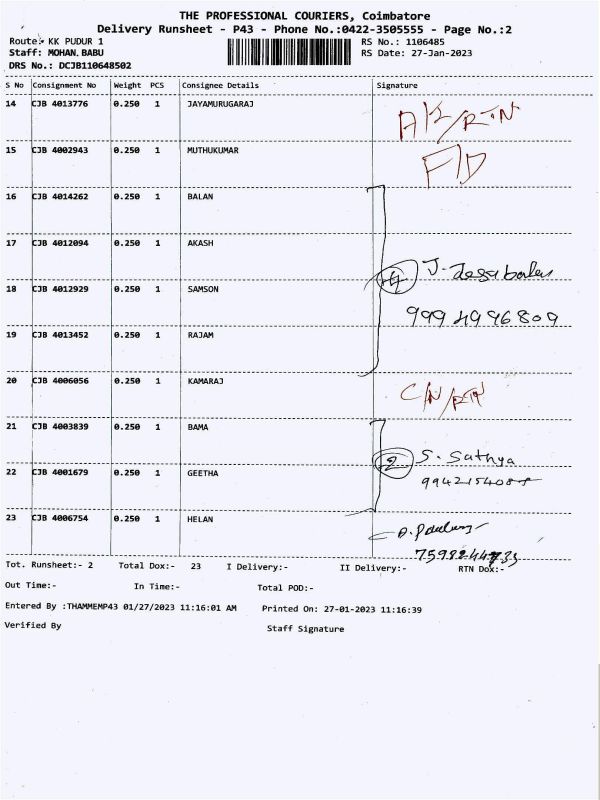 THE PROFESSIONAL COURIERS, Coimbatore
Delivery Runsheet - P43 - Phone No.:0422-3505555 - Page No.:2
Route:- KK PUDUR 1 RS No.: 1106485
Staff: MOHAN.BABU RS Date: 27-Jan-2023
DRS No.: DCJB110648502
S No Consignment No Weight PCS Consignee Details Signature
14 CJB 4013776 0.250 1 JAYAMURUGARAJ A/C/RTN
15 CJB 4002943 0.250 1 MUTHUKUMAR F/D
16 CJB 4014262 0.250 1 BALAN
17 CJB 4012094 0.250 1 AKASH
4 J.
18 CJB 4012929 0.250 1 SAMSON
9994996809
19 CJB 4013452 0.250 1 RAJAM
20 CJB 4006056 0.250 1 KAMARAJ C/N/RTN
21 CJB 4003839 0.250 1 BAMA
2 S. Sathya
22 CJB 4001679 0.250 1 GEETHA
23 CJB 4006754 0.250 1 HELAN
Tot. Runsheet:- 2 Total Dox:- 23 I Delivery:- II Delivery:- RTN Dox:-
Out Time:- In Time:- Total POD:-
Entered By :THAMMEMP43 01/27/2023 11:16:01 AM Printed On: 27-01-2023 11:16:39
Verified By Staff Signature